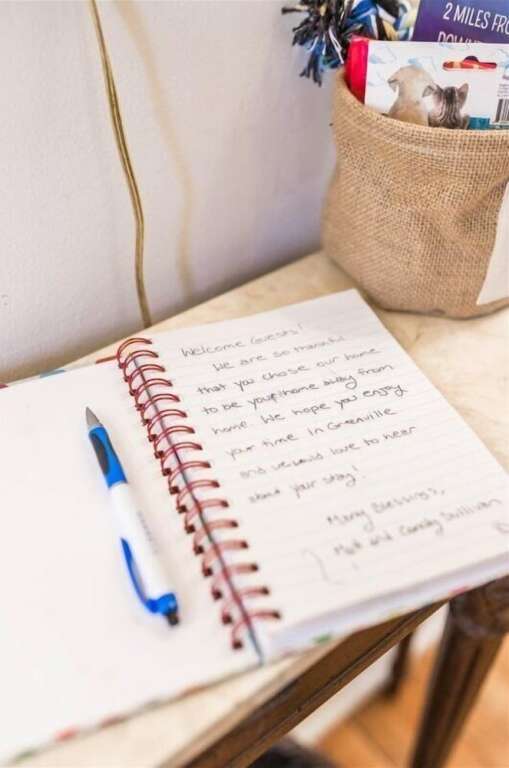 2 MILES FR
Welcome Guests!
We are so thankful
that you chose our home
to be your home away from
home. We hope you enjoy
your time in Greenville
and we would love to hear
about your stay!
Many Blessings,
Matt and Candy Sullivan